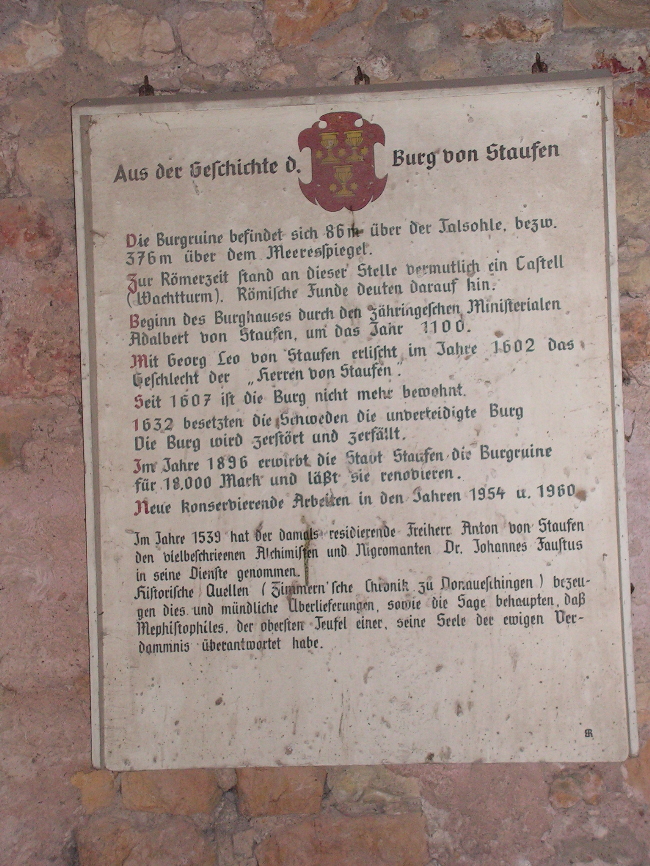 Aus der Geschichte d. Burg von Staufen
Die Burgruine befindet sich 86m über der Talsohle, bezw.
376m über dem Meeresspiegel.
Zur Römerzeit stand an dieser Stelle vermutlich ein Castell
(Wachtturm). Römische Funde deuten darauf hin.
Beginn des Burghauses durch den zähringeschen Ministerialen
Adalbert von Staufen, um das Jahr 1100.
Mit Georg Leo von Staufen erlischt im Jahre 1602 das
Geschlecht der „Herren von Staufen".
Seit 1607 ist die Burg nicht mehr bewohnt.
1632 besetzten die Schweden die unverteidigte Burg
Die Burg wird zerstört und zerfällt.
Im Jahre 1896 erwirbt die Stadt Staufen die Burgruine
für 18.000 Mark und läßt sie renovieren.
Neue konservierende Arbeiten in den Jahren 1954 u. 1960
Im Jahre 1539 hat der damals residierende Freiherr Anton von Staufen
den vielbeschrieenen Alchimisten und Nigromanten Dr. Johannes Faustus
in seine Dienste genommen.
Historische Quellen (Zimmern'sche Chronik zu Donaueschingen) bezeu-
gen dies und mündliche Überlieferungen, sowie die Sage behaupten, daß
Mephistophiles, der obersten Teufel einer, seine Seele der ewigen Ver-
dammnis überantwortet habe.